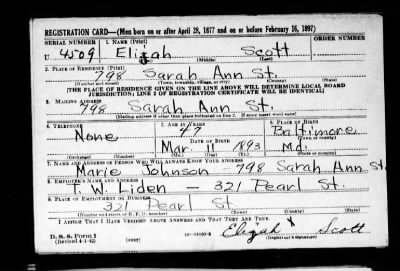 REGISTRATION CARD—(Men born on or after April 28, 1877 and on or before February 16, 1897)
SERIAL NUMBER 1. NAME (Print) ORDER NUMBER
U 4509 Elijah Scott
(First) (Middle) (Last)
2. PLACE OF RESIDENCE (Print)
798 Sarah Ann St.
(Number and street) (Town, township, village, or city) (County) (State)
[THE PLACE OF RESIDENCE GIVEN ON THE LINE ABOVE WILL DETERMINE LOCAL BOARD
JURISDICTION; LINE 2 OF REGISTRATION CERTIFICATE WILL BE IDENTICAL]
3. MAILING ADDRESS
798 Sarah Ann St.
[Mailing address if other than place indicated on line 2. If same insert word same]
4. TELEPHONE 5. AGE IN YEARS 6. PLACE OF BIRTH
None 47 Baltimore
DATE OF BIRTH (Town or county)
Mar. 11 1893 Md.
(Exchange) (Number) (Mo.) (Day) (Yr.) (State or country)
7. NAME AND ADDRESS OF PERSON WHO WILL ALWAYS KNOW YOUR ADDRESS
Marie Johnson - 798 Sarah Ann St.
8. EMPLOYER'S NAME AND ADDRESS
I. W. Liden - 321 Pearl St.
9. PLACE OF EMPLOYMENT OR BUSINESS
321 Pearl St
(Number and street or R. F. D. number) (Town) (County) (State)
I AFFIRM THAT I HAVE VERIFIED ABOVE ANSWERS AND THAT THEY ARE TRUE.
D. S. S. Form 1
(Revised 4-1-42) (over) Elijah X Scott
(Registrant's signature)